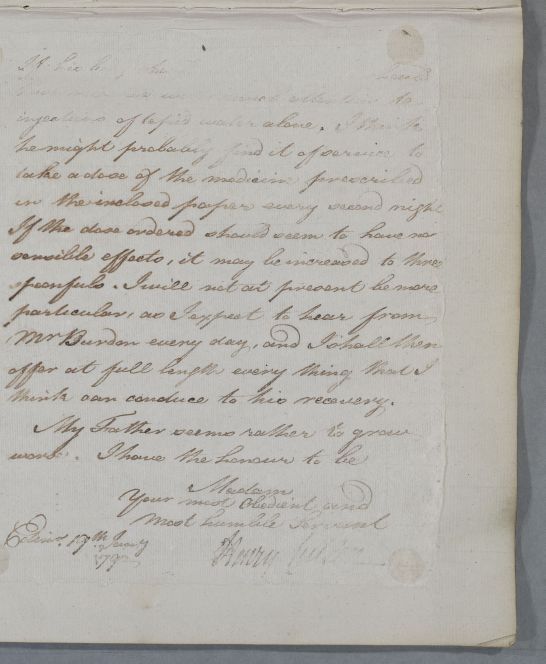 injections of tepid water alone. I think
he might probably find it of service to
take a dose of the medicine prescribed
in the inclosed paper every second night
If the dose ordered should seem to have no
sensible effects, it may be increased to three
spoonfuls. I will not at present be more
particular, as I expect to hear from
Mr Burdon every day, and I shall then
offer at full length every thing that I
think can conduce to his recovery.
My Father seems rather to grow
worse. I have the honour to be
Madam
Your most obedient and
most humble Servant
Edinr. 17th
Henry